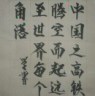 中国之高铁
腾空而起迈
至世界每个
角落